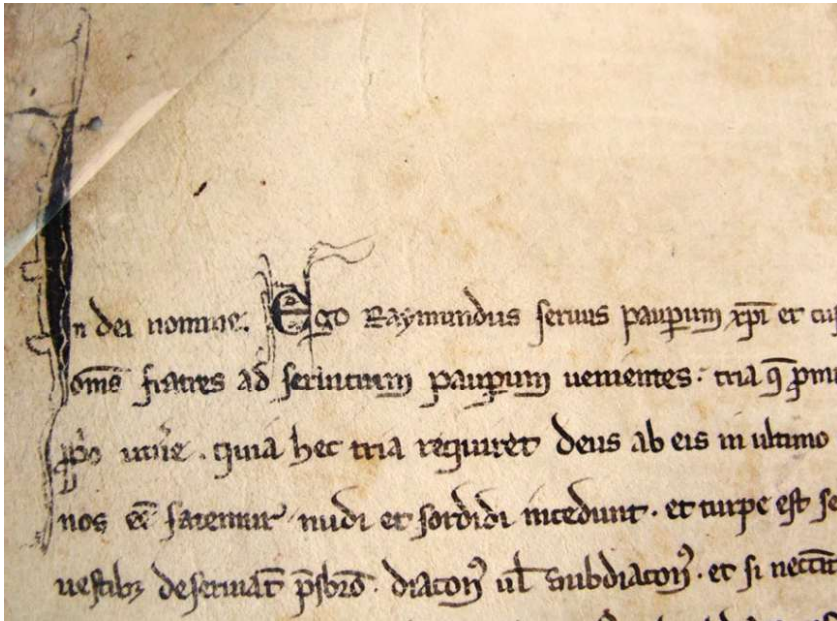 In dei nomine. Ego Raymundus seruus paup̱um xp̄i et cuſ
om̄s fratres ad seruitium paup̱um uenientes. tria ꝯ p̱mi
ꝓp̱o uiuere. quia hec tria requiret deus ab eis in ultimo
nos eē fatemur nudi et sordidi incedunt. et turpe est se
uestibꝫ deseruiāt p̄sbr̄o. diacon᷒ ul̄ subdiacon᷒. et si